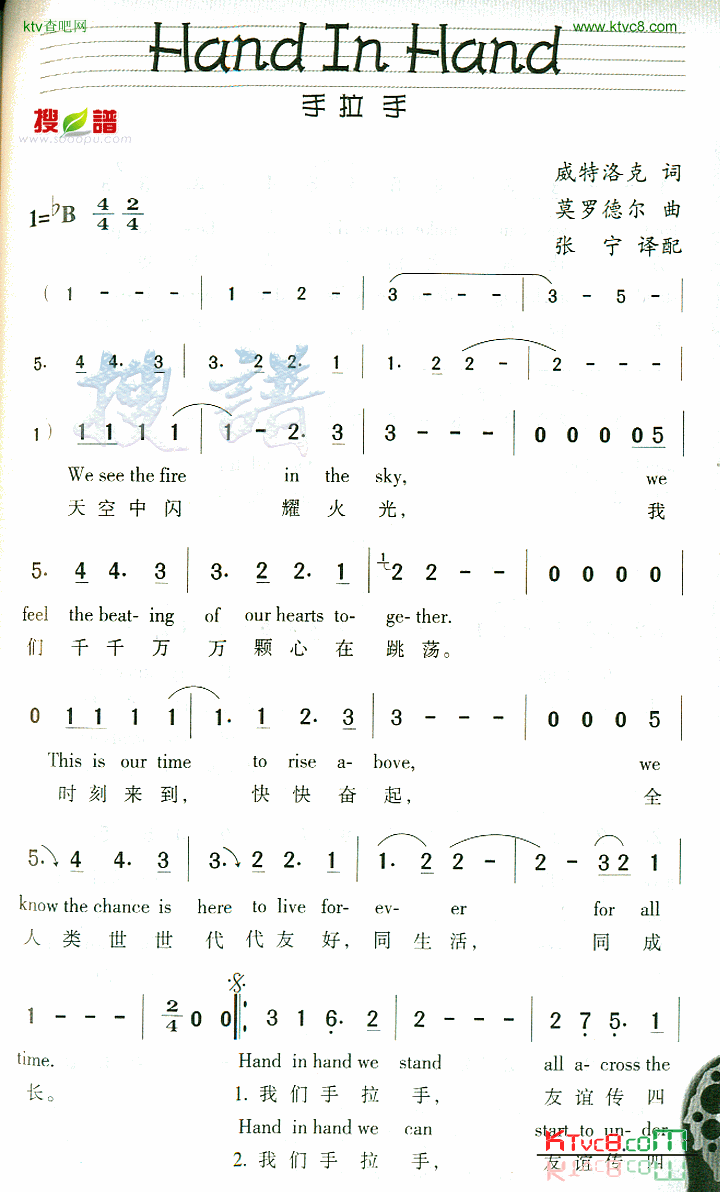 ktv查吧网
www.ktvc8.com
Hand In Hand
手拉手
搜谱
www.sooopu.com
威特洛克 词
1=♭B 4/4 2/4
莫罗德尔 曲
张宁译配
( 1 - - - | 1 - 2 - | 3 - - - | 3 - 5 - |
5. 4 4. 3 | 3. 2 2. 1 | 1. 2 2 - | 2 - - - |
搜谱
1 ) 1 1 1 1 1 | 1 - 2. 3 | 3 - - - | 0 0 0 0 0 5 |
We see the fire in the sky, we
天空中闪 耀火光, 我
5. 4 4. 3 | 3. 2 2. 1 | 1 2 2 - - | 0 0 0 0 |
feel the beat- ing of our hearts to- ge- ther.
们千千万万颗心在跳荡。
0 1 1 1 1 1 | 1. 1 2. 3 | 3 - - - | 0 0 0 5 |
This is our time to rise a- bove, we
时刻来到, 快快奋起, 全
5. 4 4. 3 | 3. 2 2. 1 | 1. 2 2 - | 2 - 3 2 1 |
know the chance is here to live for- ev- er for all
人类世世代代友好, 同生活, 同成
1 - - - | 2/4 0 0 |: 3 1 6. 2 | 2 - - - | 2 7 5. 1 |
time. Hand in hand we stand all a- cross the
长。 1. 我们手拉手, 友谊传四
Hand in hand we can start to un- der
2. 我们手拉手, 友谊传四
KTvc8.com